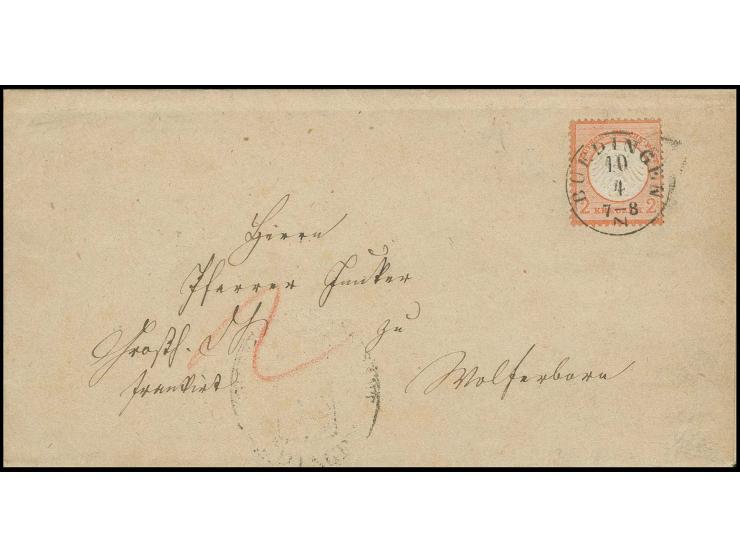 BUEDINGEN
10
4
7-8
N
2 2
Herrn
Pfarrer Junker
Großh. D. S. zu
frankirt Wolferborn
2